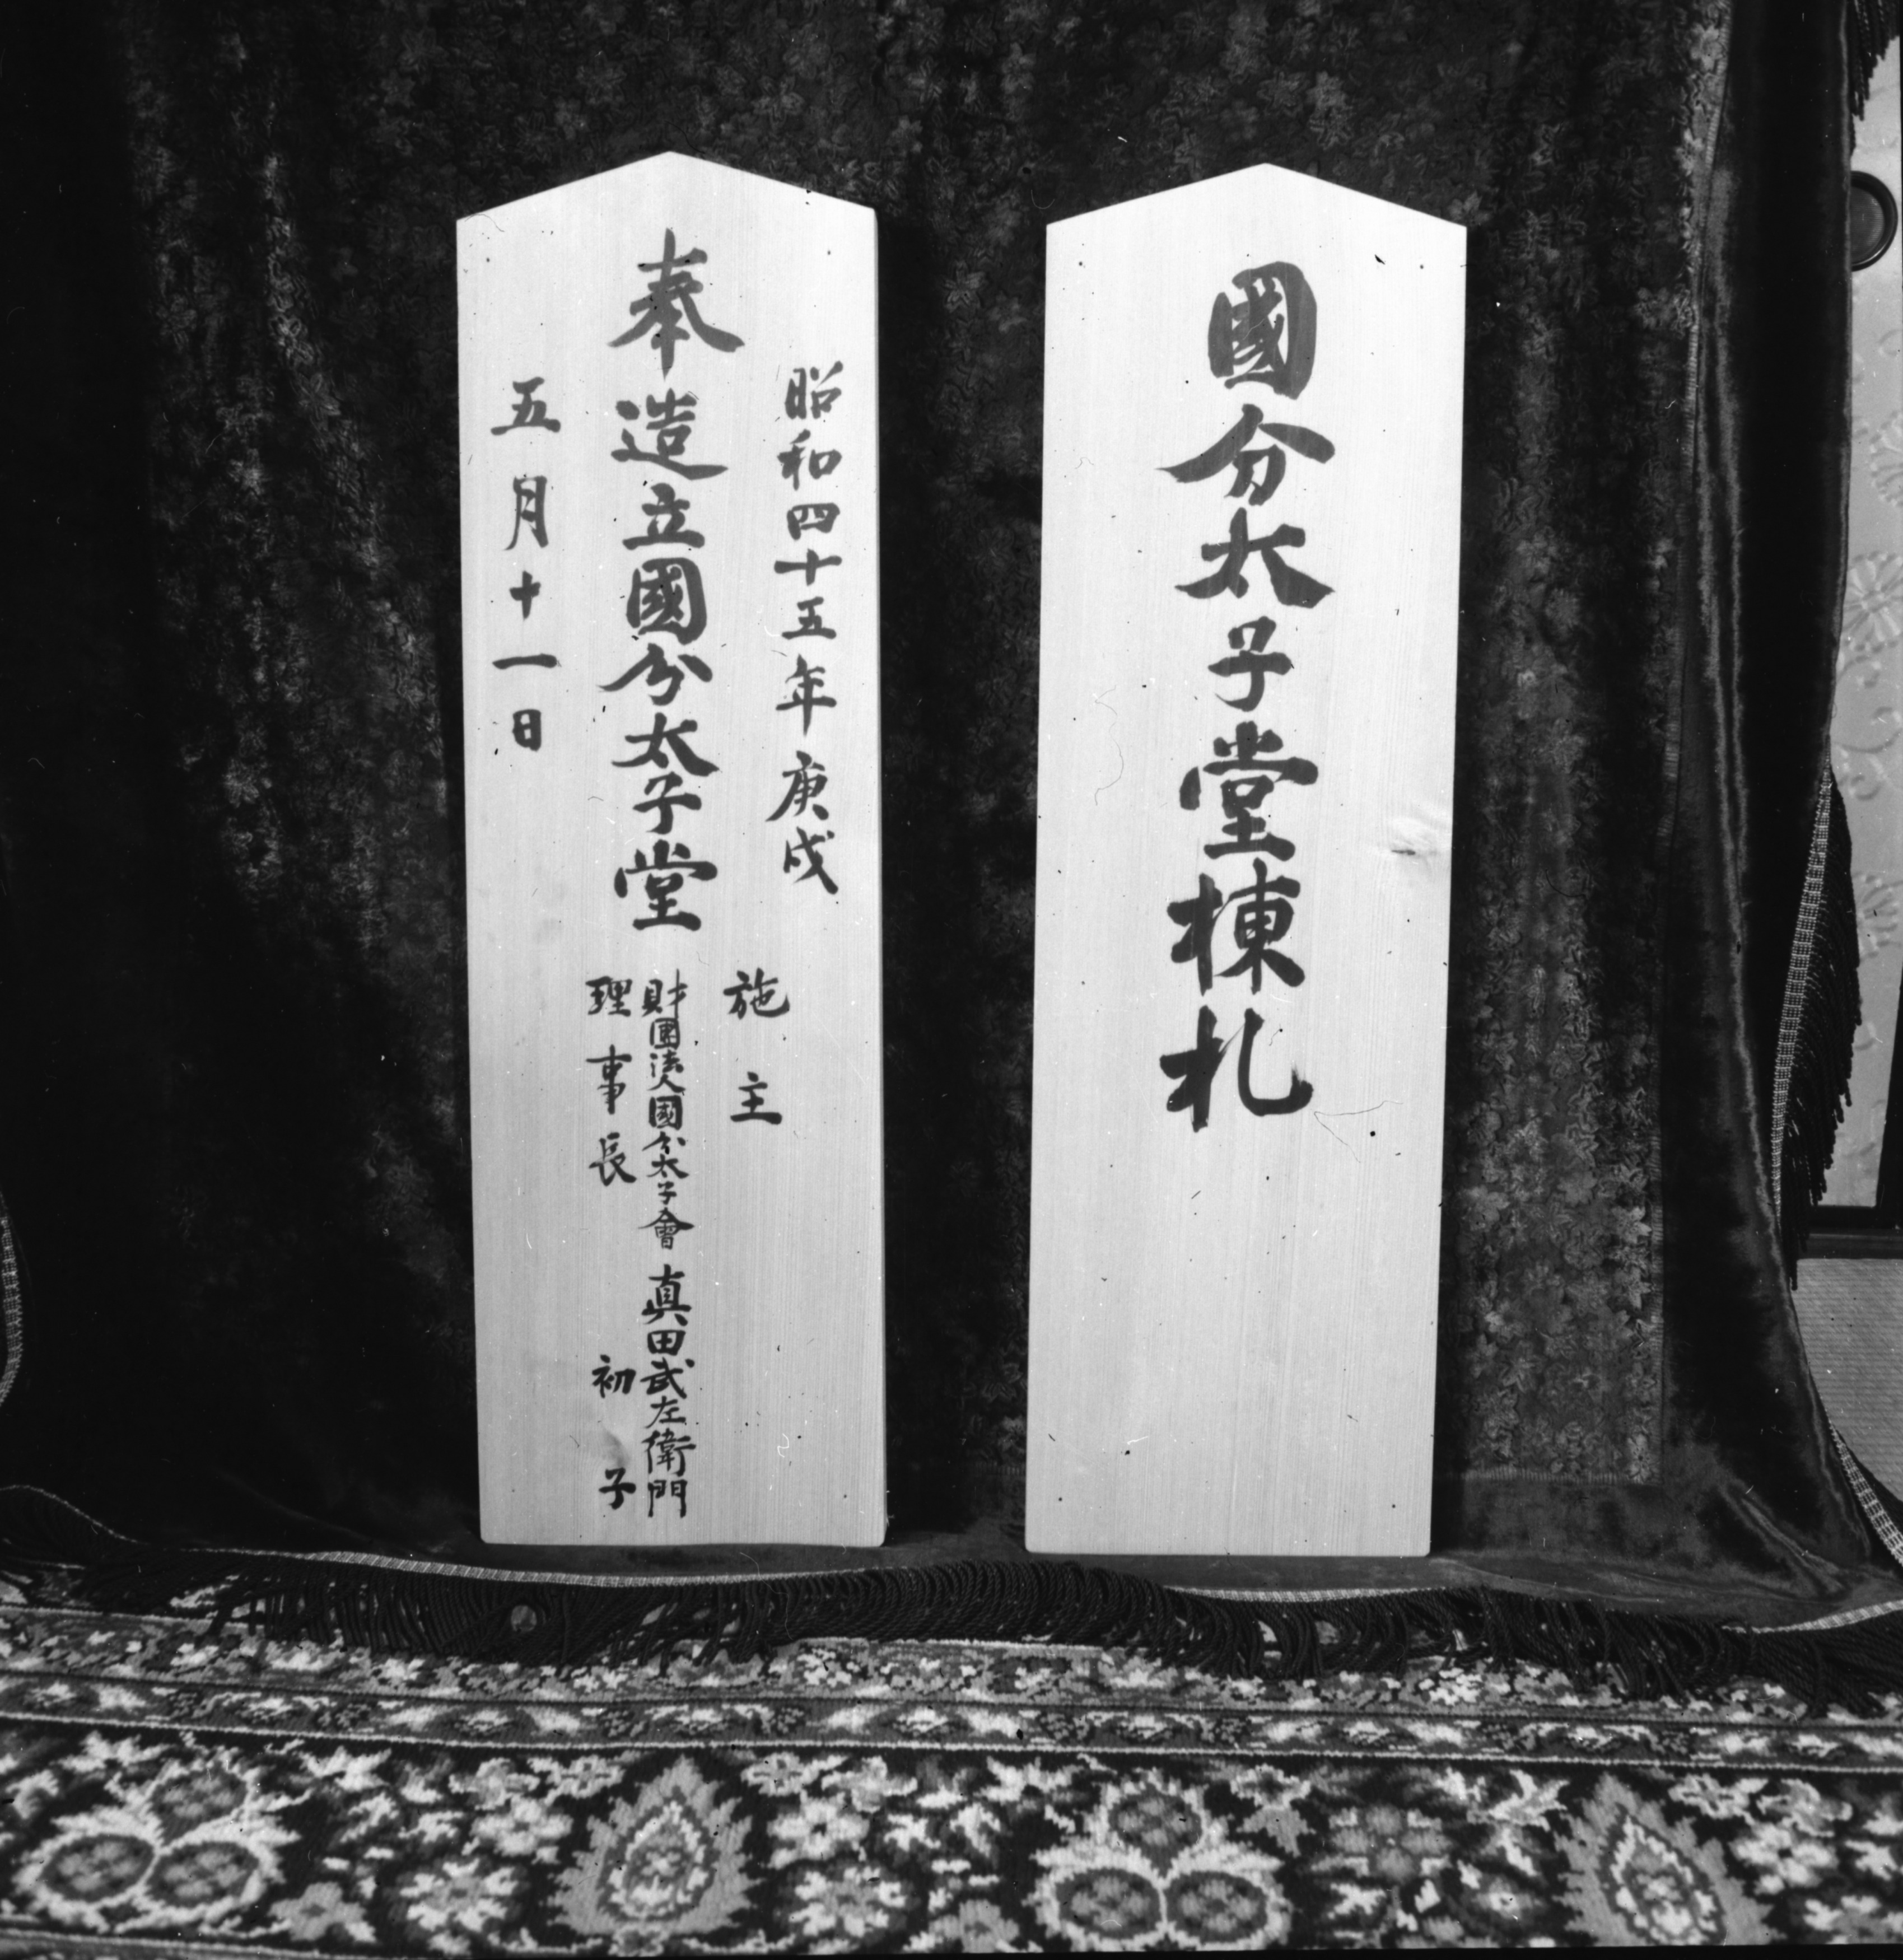 國分太子堂棟札
昭和四十五年庚戌
奉造立國分太子堂
五月十一日
施主
財團法人國分太子會 真田武左衛門
理事長 初子